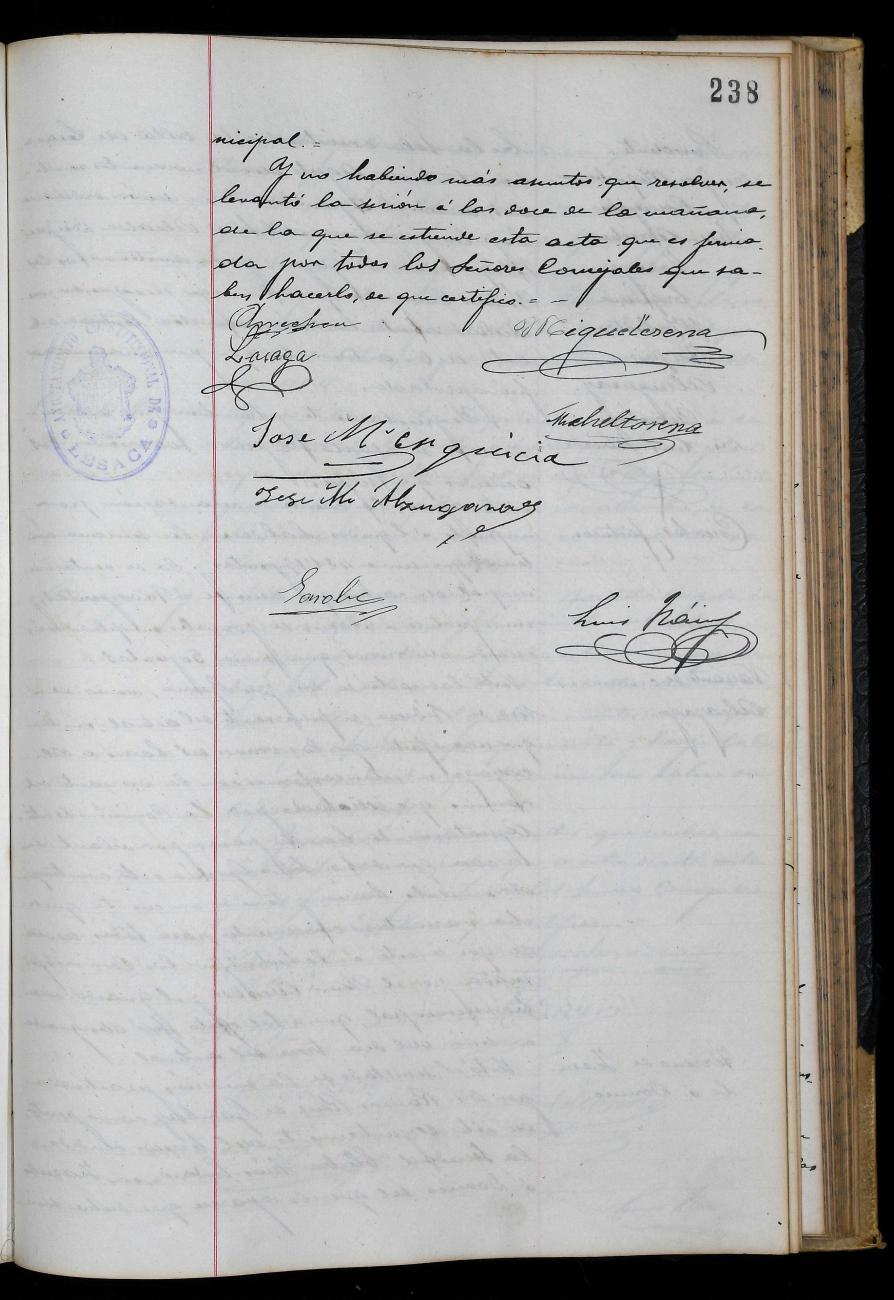 238
nicipal.=
Y no habiendo más asuntos que resolver, se
levantó la sesión á las doce de la mañana,
de la que se estiende esta acta que es firma-
da por todos los Señores Concejales que sa-
ben hacerlo, de que certifico.= -
Miguelerena
AYUNTAMIENTO CONSTITUCIONAL DE LESACA
Micheltorena
Jose Mª Enguicia
Jose Mª Alzugaray
Luis